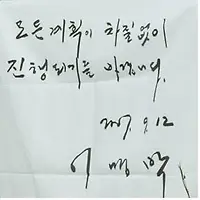 모든 계획이 차질없이
진행되기를 바랍니다.
2007. 9. 12
이 명 박